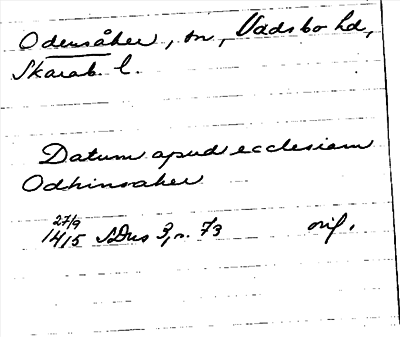 Odensåker, sn, Vadsbo hd,
Skarab. l.
Datum apud ecclesiam
Odhinsaker
27/9
1415 SDns 3, n. 73 orig.